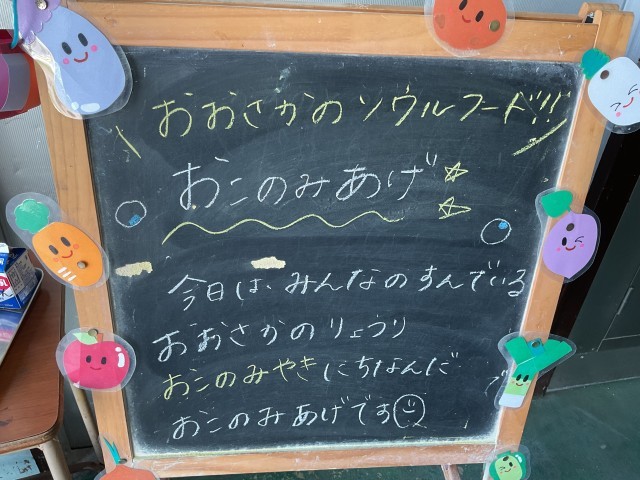 おおさかのソウルフード!!
おこのみあげ
今日は、みんなのすんでいる
おおさかのりょうり
おこのみやきにちなんだ
おこのみあげです